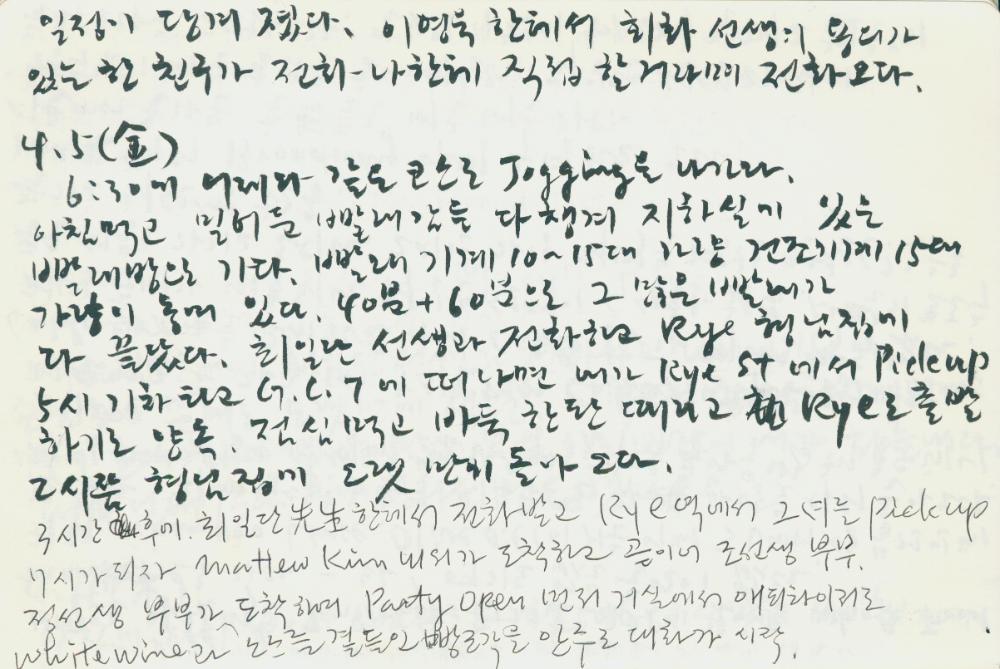 일정이 당겨 졌다. 이영북 한테서 회화 선생이
있는 한 친구가 전화-나한테 직접 할거라며 전화오다.
4.5(金)
6:30에 어레와 같은 코스로 Jogging을 나가다.
아침먹고 밀어둔 빨래감을 다 챙겨 지하실에 있는
빨래방으로 가다. 빨래 기계 10~15대 가량 건조기계 15대
가량이 놓여 있다. 40분+60분으로 그 많은 빨래가
다 끝났다. 최일단 선생과 전화하고 Rye 형님집에
5시 기차 타고 G.C.T에 떠나면 내가 Rye ST에서 Pick up
하기로 양도. 점심먹고 바둑 한판 때리고 Rye로 출발
2시쯤 형님집에 오랫만에 돌아 오다.
3시간 후에. 최일단 先生 한테서 전화받고 Rye역에서 그녀를 Pick up
7시가 되자 Mattew Kim 내외가 도착하고 곧이어 조선생 부부.
정선생 부부가 도착하며 Party open 먼저 거실에서 애피타이저로
white wine과 노스를 곁들인 빵조각을 안주로 대화가 시작.